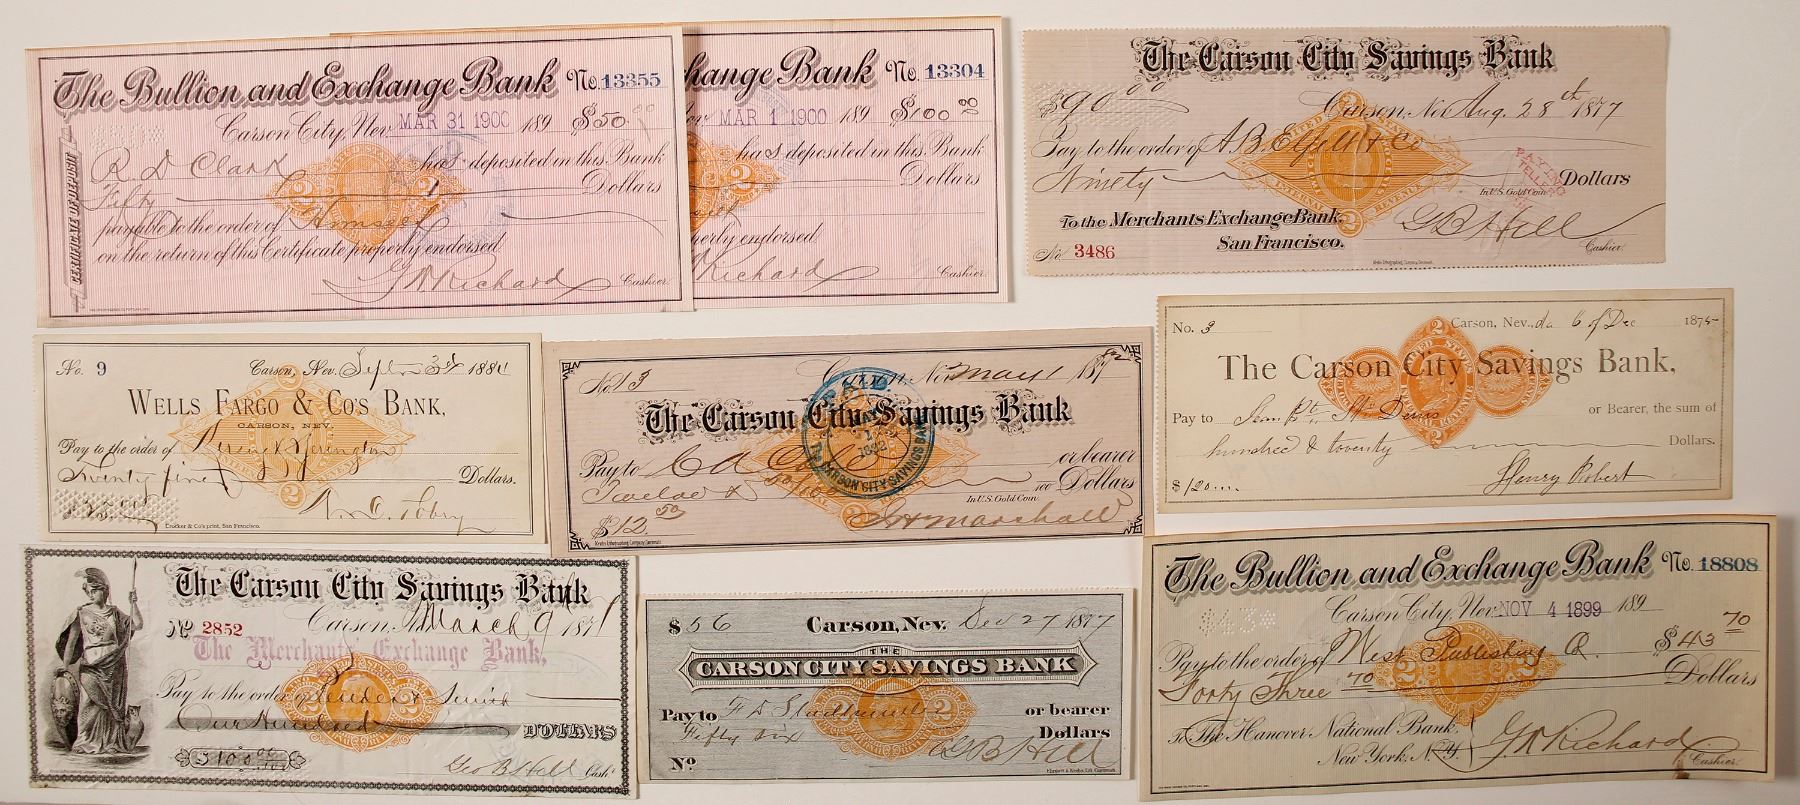 The Bullion and Exchange Bank No. 13355
Carson City, Nev. MAR 31 1900 189 $50 00
CERTIFICATE OF DEPOSIT
R D Clark has deposited in this Bank
Fifty Dollars
payable to the order of Himself
on the return of this Certificate properly endorsed
G W Richard Cashier.
hange Bank No. 13304
Nev MAR 1 1900 189 $100 00
has deposited in this Bank
Dollars
perly endorsed
Richard Cashier.
The Carson City Savings Bank
$90 00 Carson, Nev Aug. 28th 1877
Pay to the order of A B Elfelt & Co
Ninety In U.S. Gold Coin Dollars
PAYING TELLER
To the Merchants Exchange Bank,
San Francisco. G B Hill
No 3486 Cashier.
No. 9 Carson, Nev. Sept 3d 1881
WELLS FARGO & CO'S BANK,
CARSON, NEV.
Pay to the order of Yerington
Twenty five Dollars.
Crocker & Co's print, San Francisco.
No 13 Carson, Nev May 1 1882
The Carson City Savings Bank
PAID
CARSON CITY SAVINGS BANK
Pay to or bearer
Twelve & 50/100 100 Dollars
In U.S. Gold Coin.
$12 50 Marshall
No. 3 Carson, Nev., 6 of Dec 1875
The Carson City Savings Bank,
Pay to or Bearer, the sum of
hundred & twenty Dollars.
$120 Henry Robert
The Carson City Savings Bank
Carson, Nev March 9 1877
No 2852
The Merchants Exchange Bank,
Pay to the order of
One Hundred DOLLARS
$100 00 Geo B Hill Cash
$56 Carson, Nev. Dec 27 1877
THE
CARSON CITY SAVINGS BANK
Pay to or bearer
Fifty six Dollars
No G B Hill
The Bullion and Exchange Bank No. 18808
Carson City, Nev. NOV 4 1899 189
Pay to the order of West Publishing Co. $43 70
Forty Three 70 Dollars
To The Hanover National Bank,
New York, N.Y. G W Richard Cashier.